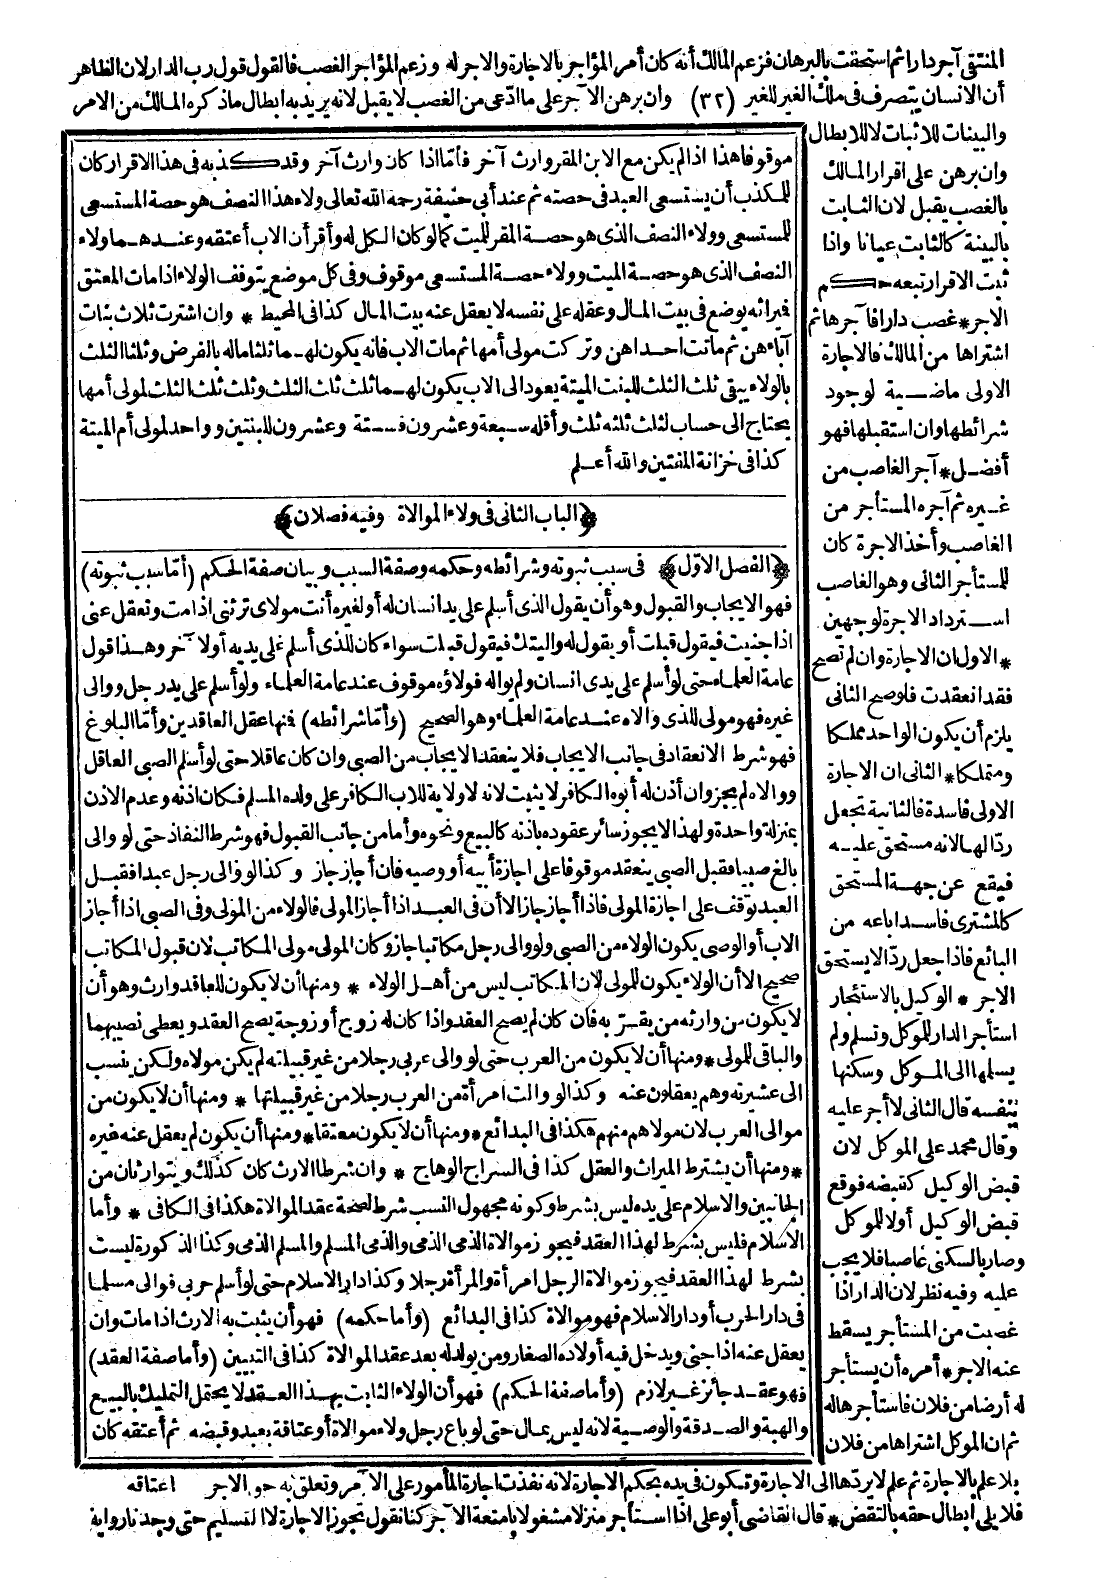 المنتقى آجر دارا ثم استحقت بالبرهان فزعم المالك أنه كان أمر المؤاجر بالاجارة والاجر له وزعم المؤاجر الغصب فالقول قول رب الدار لان الظاهر
أن الانسان يتصرف فى ملك الغير للغير (٣٢) وان برهن الآجر على ما ادّعى من الغصب لا يقبل لانه يريد به ابطال ما ذكره المالك من الامر
والبينات للاثبات لا للابطال
وان برهن على اقرار المالك
بالغصب يقبل لان الثابت
بالبينة كالثابت عيانا واذا
ثبت الاقرار تبعه حكم
الاجر * غصب دارا فآجرها ثم
اشتراها من المالك فالاجارة
الاولى ماضية لوجود
شرائطها وان استقبلها فهو
أفضل * آجر الغاصب من
غيره ثم آجره المستأجر من
الغاصب وأخذ الاجرة كان
للمستأجر الثانى وهو الغاصب
استرداد الاجرة لوجهين
* الاول ان الاجارة وان لم تصح
فقد انعقدت فلو صح الثانى
يلزم أن يكون الواحد مملكا
ومتملكا * الثانى ان الاجارة
الاولى فاسدة فالثانية تجعل
ردّا لها لانه مستحق عليه
فيقع عن جهة المستحق
كالمشترى فاسدا باعه من
البائع فاذا جعل ردّا لا يستحق
الاجر * الوكيل بالاستئجار
استأجر الدار للموكل وتسلم ولم
يسلمها الى الموكل وسكنها
بنفسه قال الثانى لا أجر عليه
وقال محمد على الموكل لان
قبض الوكيل كقبضه فوقع
قبض الوكيل أولا للموكل
وصار بالسكنى غاصبا فلا يجب
عليه وفيه نظر لان الدار اذا
غصبت من المستأجر يسقط
عنه الاجر * أمره أن يستأجر
له أرضا من فلان فاستأجرها له
ثم ان الموكل اشتراها من فلان
موقوفا هذا اذا لم يكن مع الابن المقر وارث آخر فأمّا اذا كان وارث آخر وقد كذبه فى هذا الاقرار كان
للمكذب أن يستسعى العبد فى حصته ثم عند أبى حنيفة رحمه الله تعالى ولاء هذا النصف هو حصة المستسعى
للمستسعى وولاء النصف الذى هو حصة المقر للميت كما لو كان الكل له وأقر أن الاب أعتقه وعندهما ولاء
النصف الذى هو حصة الميت وولاء حصة المستسعى موقوف وفى كل موضع يتوقف الولاء اذا مات المعتق
فيراثه يوضع فى بيت المال وعقله على نفسه لا يعقل عنه بيت المال كذا فى المحيط * وان اشترت ثلاث بنات
آباءهن ثم ماتت احداهن وتركت مولى أمها ثم مات الاب فانه يكون لهما ثلثا ماله بالفرض وثلثا الثلث
بالولاء يبقى ثلث الثلث للبنت الميتة يعود الى الاب يكون لهما ثلث ثلث الثلث وثلث ثلث الثلث لمولى أمها
يحتاج الى حساب لثلث ثلثه ثلث وأقله سبعة وعشرون فستة وعشرون للبنتين وواحد لمولى أم الميتة
كذا فى خزانة المفتين والله أعلم
﴿الباب الثانى فى ولاء الموالاة وفيه فصلان﴾
﴿الفصل الاوّل﴾ فى سبب ثبوته وشرائطه وحكمه وصفة السبب وبيان صفة الحكم (أمّا سبب ثبوته)
فهو الايجاب والقبول وهو أن يقول الذى أسلم على يد انسان له أو لغيره أنت مولاى ترثنى اذا مت وتعقل عنى
اذا جنيت فيقول قبلت أو يقول له واليتك فيقول قبلت سواء كان للذى أسلم على يديه أو لا آخر وهذا قول
عامة العلماء حتى لو أسلم على يدى انسان ولم يواله فولاؤه موقوف عند عامة العلماء ولو أسلم على يد رجل ووالى
غيره فهو مولى للذى والاه عند عامة العلماء وهو الصحيح (وأمّا شرائطه) فمنها عقل العاقدين وأمّا البلوغ
فهو شرط الانعقاد فى جانب الايجاب فلا ينعقد الايجاب من الصبى وان كان عاقلا حتى لو أسلم الصبى العاقل
ووالاه لم يجز وان أذن له أبوه الكافر لا يثبت لانه لا ولاية للاب الكافر على ولده المسلم فكان اذنه وعدم الاذن
بمنزلة واحدة ولهذا لا يجوز سائر عقوده باذنه كالبيع ونحوه وأما من جانب القبول فهو شرط النفاذ حتى لو والى
بالغ صبيا فقبل الصبى ينعقد موقوفا على اجازة أبيه أو وصيه فان أجاز جاز وكذا لو والى رجل عبدا فقبل
العبد توقف على اجازة المولى فاذا أجاز جاز الا أن فى العبد اذا أجاز المولى فالولاء من المولى وفى الصبى اذا أجاز
الاب أو الوصى يكون الولاء من الصبى ولو والى رجل مكاتبا جاز وكان المولى مولى المكاتب لان قبول المكاتب
صحيح الا أن الولاء يكون للمولى لان المكاتب ليس من أهل الولاء * ومنها أن لا يكون للعاقد وارث وهو أن
لا يكون من وارثه من يقرّ به فان كان لم يصح العقد واذا كان له زوج أو زوجة يصح العقد ويعطى نصيبهما
والباقى للمولى * ومنها أن لا يكون من العرب حتى لو والى عربى رجلا من غير قبيلته لم يكن مولاه ولكن ينسب
الى عشيرته وهم يعقلون عنه وكذا لو والت امرأة من العرب رجلا من غير قبيلتها * ومنها أن لا يكون من
موالى العرب لان مولاهم منهم هكذا فى البدائع * ومنها أن لا يكون معتقا * ومنها أن يكون لم يعقل عنه غيره
* ومنها أن يشترط الميراث والعقل كذا فى السراج الوهاج * وان شرطا الارث كان كذلك ويتوارثان من
الجانبين والاسلام على يده ليس بشرط وكونه مجهول النسب شرط لصحة عقد الموالاة هكذا فى الكافى * وأما
الاسلام فليس بشرط لهذا العقد فيجوز موالاة الذمى الذمى والذمى المسلم والمسلم الذمى وكذا الذكورة ليست
بشرط لهذا العقد فيجوز موالاة الرجل امرأة والمرأة رجلا وكذا دار الاسلام حتى لو أسلم حربى فوالى مسلما
فى دار الحرب أو دار الاسلام فهو موالاة كذا فى البدائع (وأما حكمه) فهو أن يثبت به الارث اذا مات وان
يعقل عنه اذا جنى ويدخل فيه أولاده الصغار ومن يولد له بعد عقد الموالاة كذا فى التبيين (وأما صفة العقد)
فهو عقد جائز غير لازم (وأما صفة الحكم) فهو أن الولاء الثابت بهذا العقد لا يحتمل التمليك بالبيع
والهبة والصدقة والوصية لانه ليس بمال حتى لو باع رجل ولاء موالاة أو عتاقة بعبد وقبضه ثم أعتقه كان
بلا علم بالاجارة ثم علم لا يردّها الى الاجارة وتكون فى يده بحكم الاجارة لانه نفذت اجارة المأمور على الآمر وتعلق به حق الاجر اعتاقه
فلا يلى ابطال حقه بالنقض * قال القاضى أبو على اذا استأجر منزلا مشغولا بامتعة الآجر كنا نقول تجوز الاجارة لا التسليم حتى وجدنا رواية